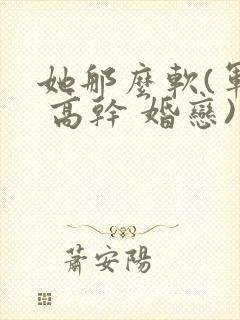 她那麼軟(軍
高幹 婚戀)
蕭安陽